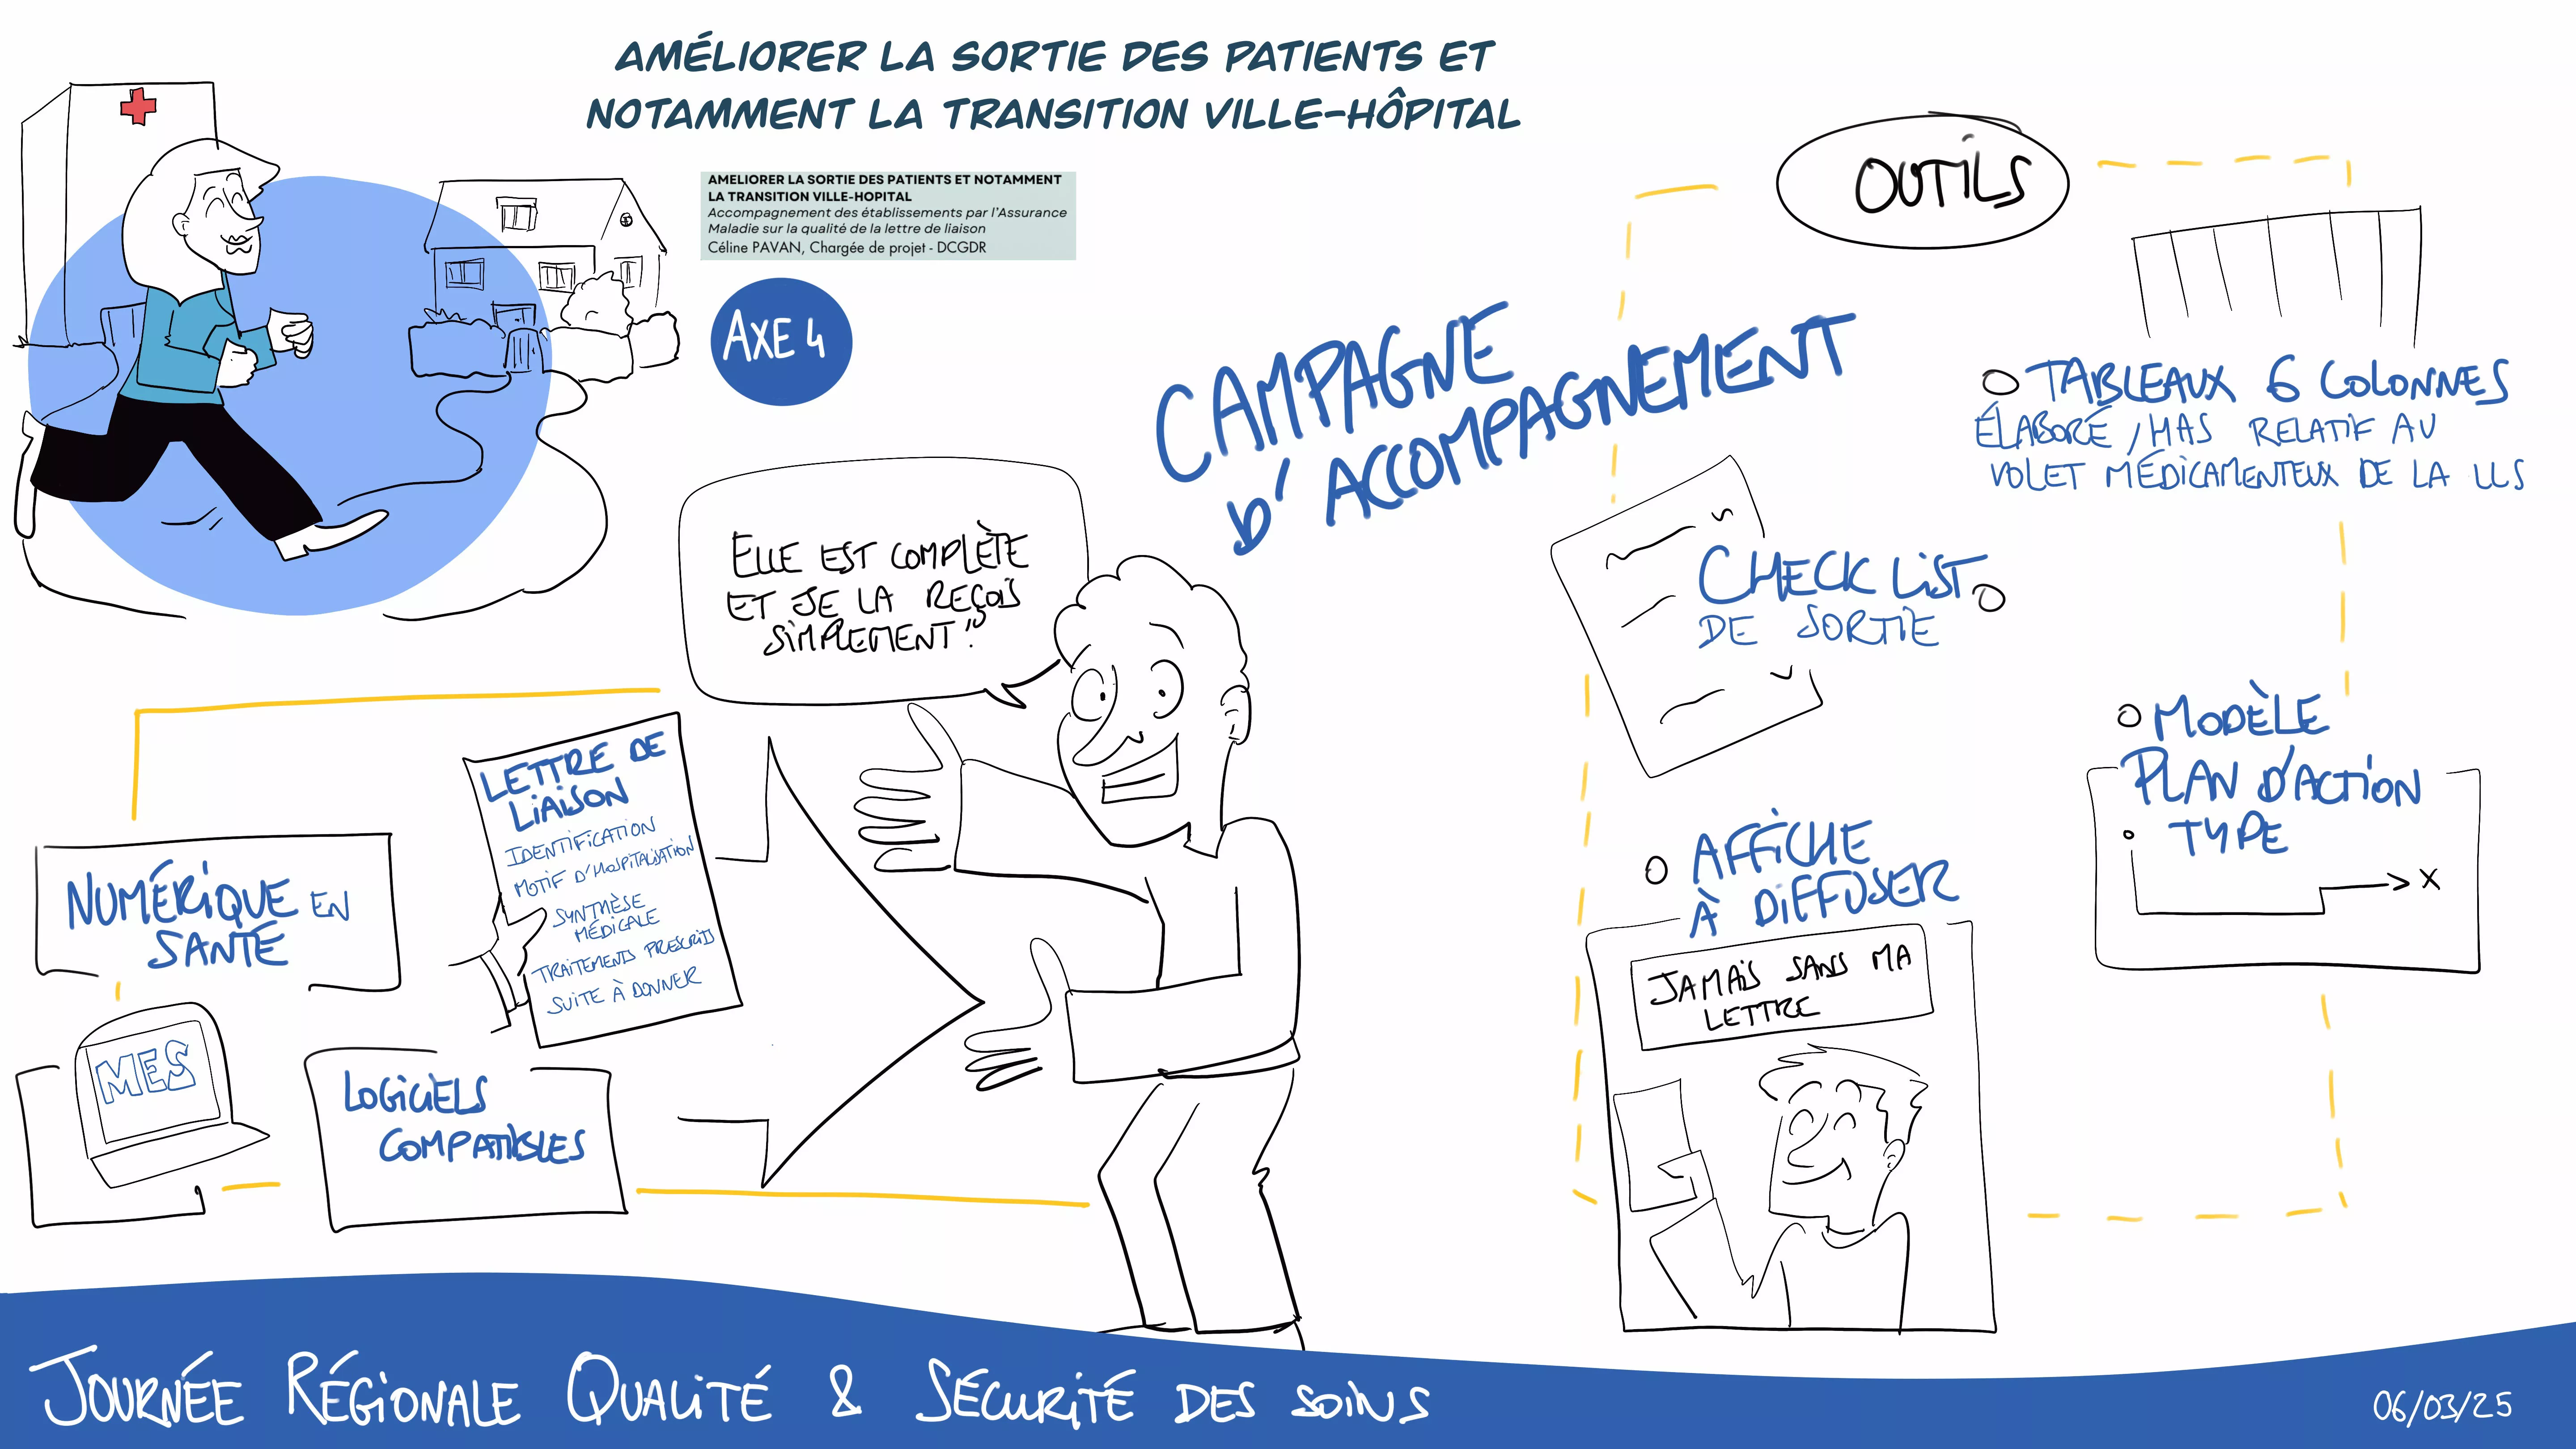 AMÉLIORER LA SORTIE DES PATIENTS ET
NOTAMMENT LA TRANSITION VILLE-HÔPITAL
AMELIORER LA SORTIE DES PATIENTS ET NOTAMMENT
LA TRANSITION VILLE-HOPITAL
Accompagnement des établissements par l'Assurance
Maladie sur la qualité de la lettre de liaison
Céline PAVAN, Chargée de projet - DCGDR
AXE 4
CAMPAGNE
D'ACCOMPAGNEMENT
ELLE EST COMPLÈTE
ET JE LA REÇOIS
SIMPLEMENT!"
LETTRE DE
LIAISON
IDENTIFICATION
MOTIF D'HOSPITALISATION
SYNTHÈSE
MÉDICALE
TRAITEMENTS PRESCRITS
SUITE À DONNER
NUMÉRIQUE EN
SANTÉ
MES
LOGICIELS
COMPATIBLES
OUTILS
TABLEAUX 6 COLONNES
ÉLABORÉ / HAS RELATIF AU
VOLET MÉDICAMENTEUX DE LA LLS
CHECK LIST
DE SORTIE
MODÈLE
PLAN D'ACTION
TYPE
X
AFFICHE
À DIFFUSER
JAMAIS SANS MA
LETTRE
JOURNÉE RÉGIONALE QUALITÉ & SÉCURITÉ DES SOINS
06/03/25